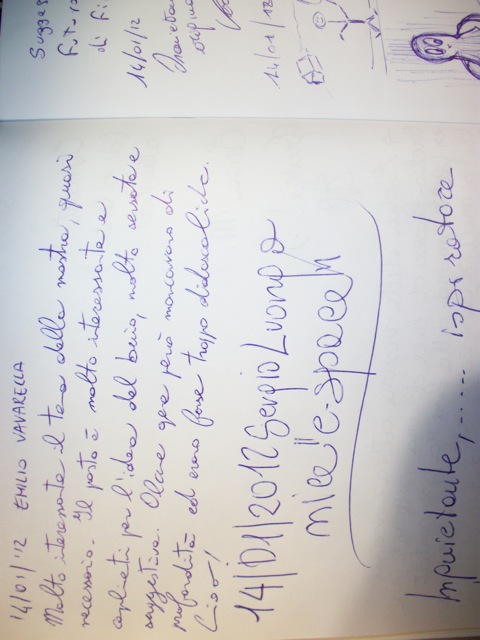 14/01/'12 EMILIO VAVARELLA
Molto interessante il tema della mostra, quasi
necessario. Il posto è molto interessante e
per l'idea del buio, molto sensata e
suggestiva. Alcune opere però mancavano di
profondità ed erano forse troppo didascaliche.
Ciao!
14/01/2012 Sergio Luongo
nice "e-space"
Inquietante,.....
Sugges
futuris
di fi
14/01/12
origina
14/01/12